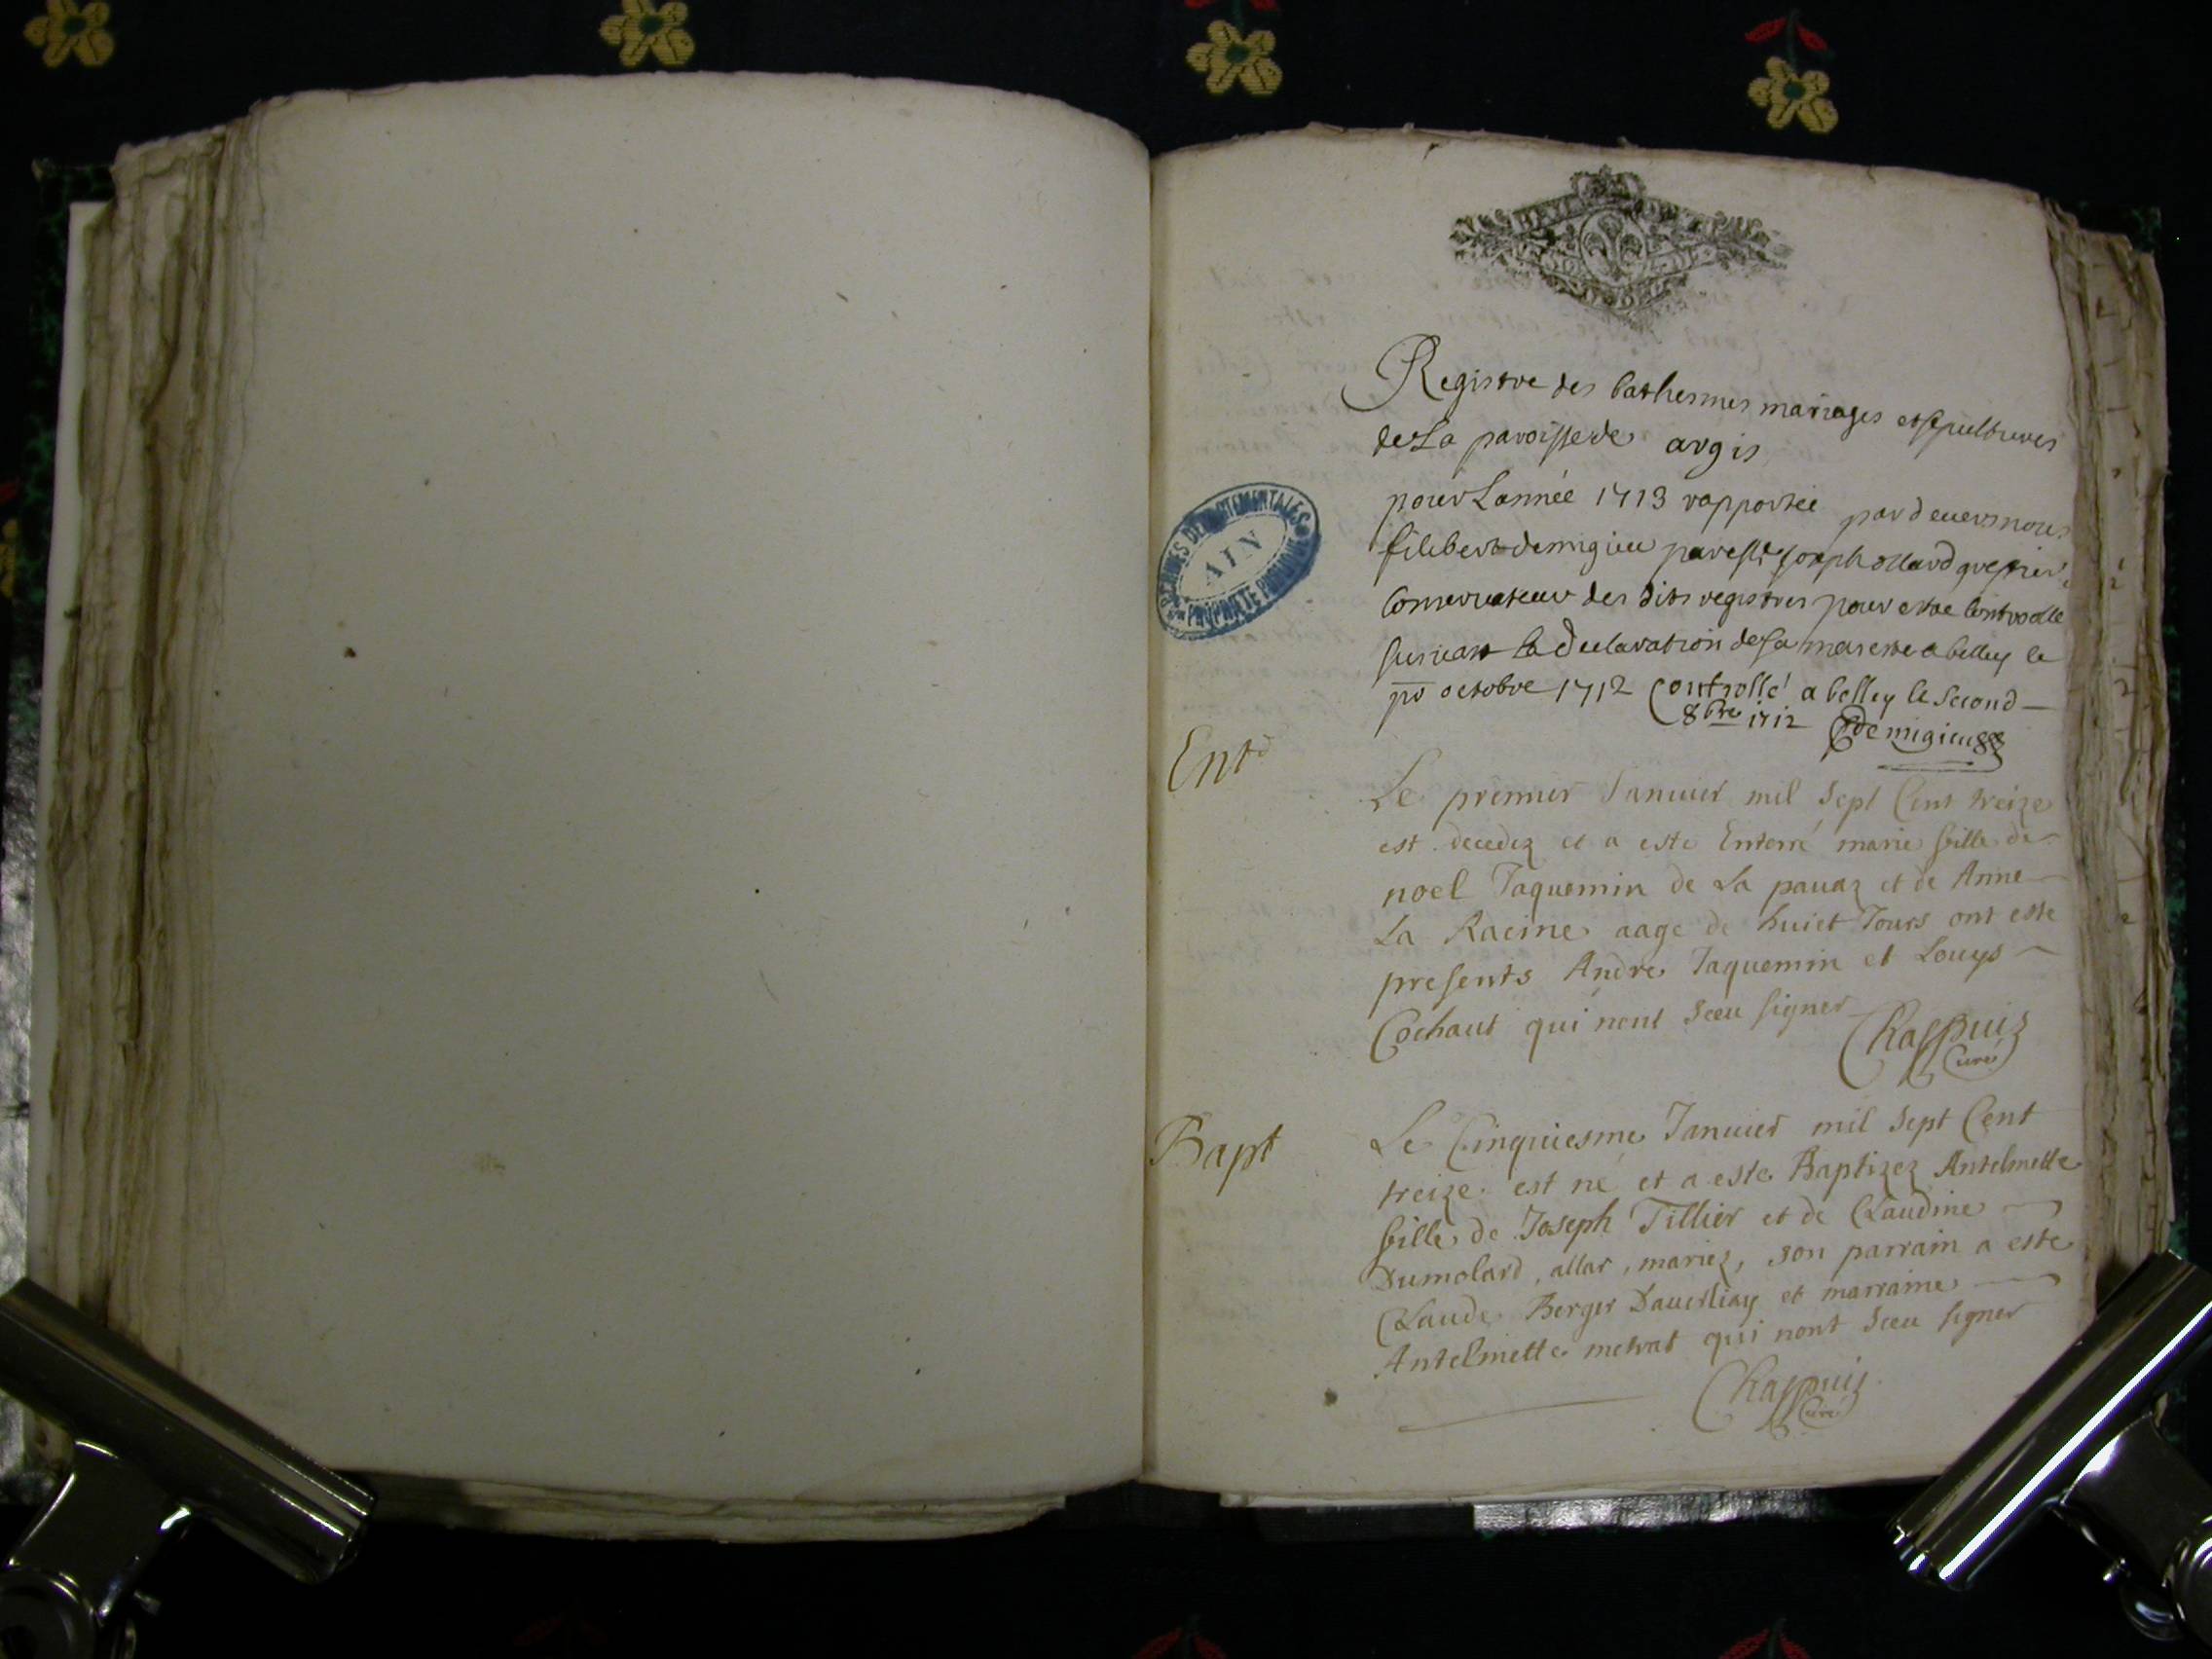 Registre des bathesmes mariages et sepultures
de La paroisse de argis
pour Lannée 1713 rapportée pardevers nous
filibert de migieu par Mre Joseph ollard greffier
Conservateur des dits registres pour estre Controlle
suivant La declaration de sa majeste a belley le
po octobre 1712 Controllé a belley le second
8bre 1712 De migieu
ARCHIVES DEPARTEMENTALES
AIN
PROPRIETE PUBLIQUE
Ent
Le premier Januier mil sept Cent treize
est decedez et a este Enterré marie fille de
noel Jaquemin de La pauaz et de Anne
La Racine aage de huict Jours ont este
presents Andre Jaquemin et Louys
Cochaut qui nont sceu signer
Chappuiz
Curé
Bapt
Le Cinquiesme Januier mil sept Cent
treize est né et a este Baptizez Antelmette
fille de Joseph Tillier et de Claudine
Dumolard, allar, mariez, son parrain a este
Claude Berger et marraine
Antelmette metrat qui nont sceu signer
Chappuiz
Curé